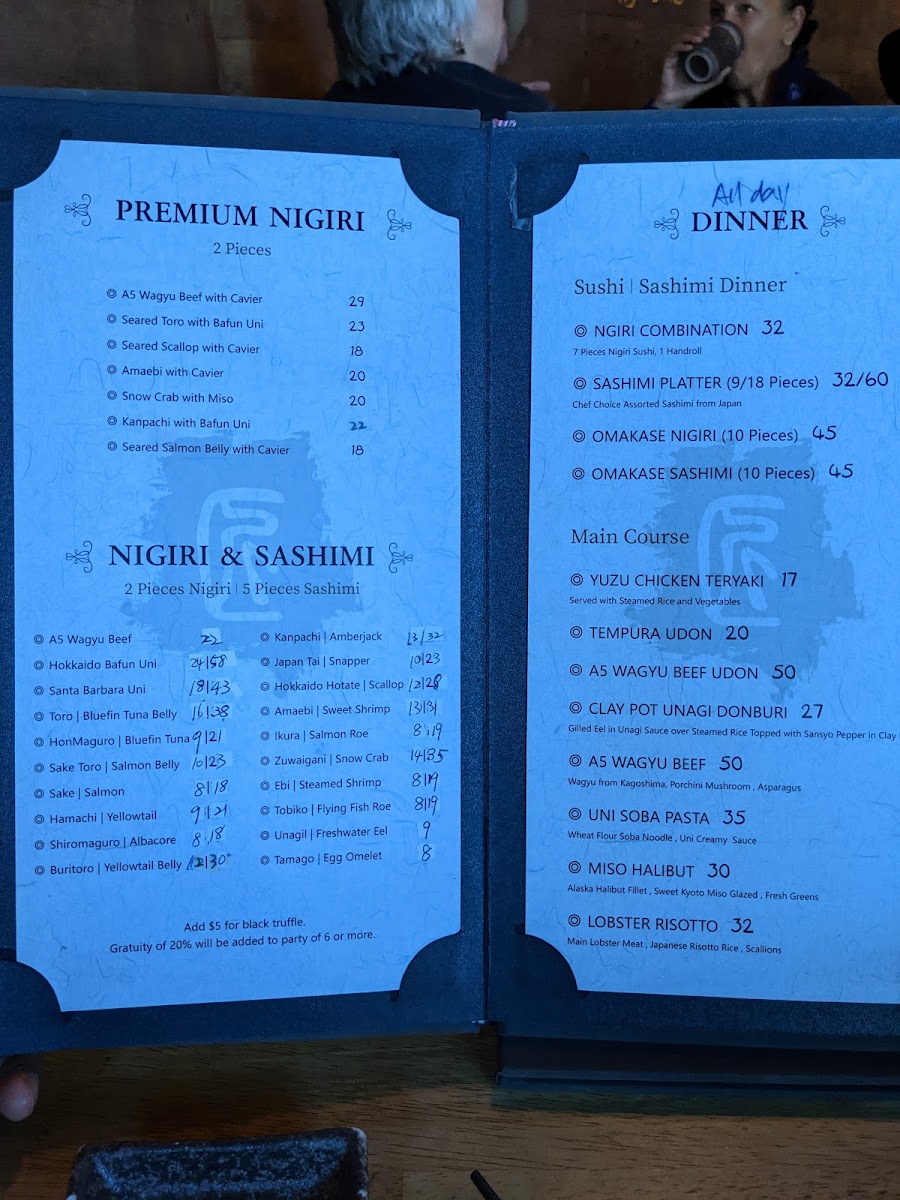 PREMIUM NIGIRI
2 Pieces
A5 Wagyu Beef with Cavier 29
Seared Toro with Bafun Uni 23
Seared Scallop with Cavier 18
Amaebi with Cavier 20
Snow Crab with Miso 20
Kanpachi with Bafun Uni 22
Seared Salmon Belly with Cavier 18
NIGIRI & SASHIMI
2 Pieces Nigiri | 5 Pieces Sashimi
A5 Wagyu Beef 22
Hokkaido Bafun Uni 24|58
Santa Barbara Uni 18|43
Toro | Bluefin Tuna Belly 16|38
HonMaguro | Bluefin Tuna 9|21
Sake Toro | Salmon Belly 10|23
Sake | Salmon 8|18
Hamachi | Yellowtail 9|21
Shiromaguro | Albacore 8|18
Buritoro | Yellowtail Belly 12|30
Kanpachi | Amberjack 13/32
Japan Tai | Snapper 10|23
Hokkaido Hotate | Scallop 12|28
Amaebi | Sweet Shrimp 13|31
Ikura | Salmon Roe 8|19
Zuwaigani | Snow Crab 14|35
Ebi | Steamed Shrimp 8|19
Tobiko | Flying Fish Roe 8|19
Unagil | Freshwater Eel 9
Tamago | Egg Omelet 8
Add $5 for black truffle.
Gratuity of 20% will be added to party of 6 or more.
All day
DINNER
Sushi | Sashimi Dinner
NGIRI COMBINATION 32
7 Pieces Nigiri Sushi, 1 Handroll
SASHIMI PLATTER (9/18 Pieces) 32/60
Chef Choice Assorted Sashimi from Japan
OMAKASE NIGIRI (10 Pieces) 45
OMAKASE SASHIMI (10 Pieces) 45
Main Course
YUZU CHICKEN TERYAKI 17
Served with Steamed Rice and Vegetables
TEMPURA UDON 20
A5 WAGYU BEEF UDON 50
CLAY POT UNAGI DONBURI 27
Gilled Eel in Unagi Sauce over Steamed Rice Topped with Sansyo Pepper in Clay
A5 WAGYU BEEF 50
Wagyu from Kagoshima, Porchini Mushroom , Asparagus
UNI SOBA PASTA 35
Wheat Flour Soba Noodle , Uni Creamy Sauce
MISO HALIBUT 30
Alaska Halibut Fillet , Sweet Kyoto Miso Glazed , Fresh Greens
LOBSTER RISOTTO 32
Main Lobster Meat , Japanese Risotto Rice , Scallions